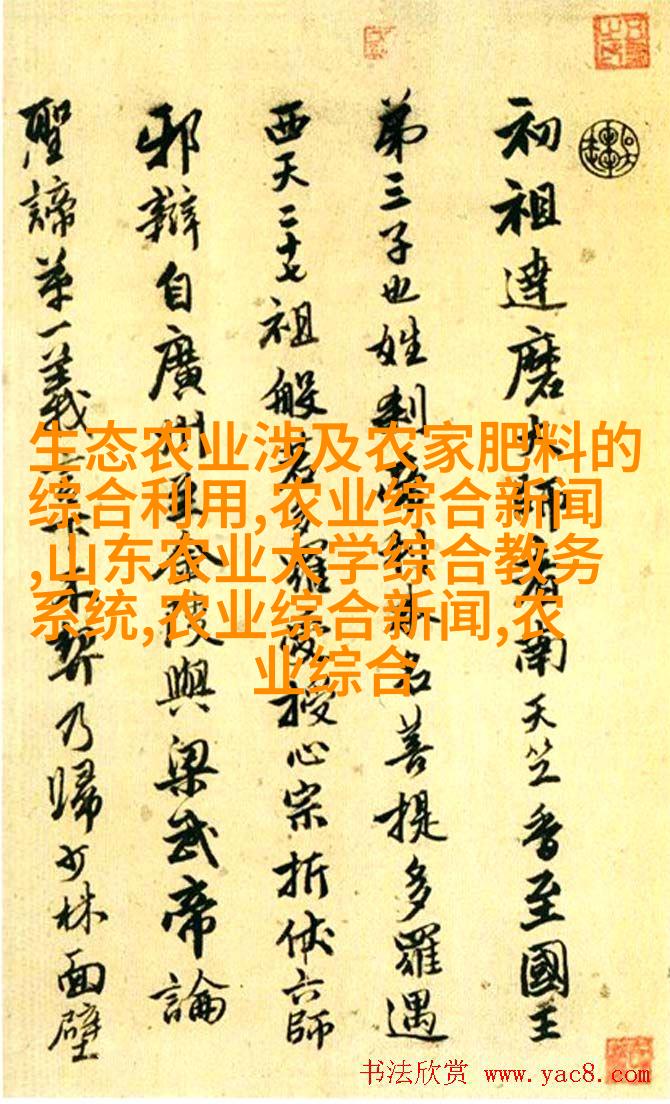 初祖達磨大師者南天竺香至國王
第三子也姓刹利本名菩提多羅遇
西天二十七祖般若多羅授心宗折伏六師
邪辯自廣州至金陵與梁武帝論
聖諦第一義不契乃歸少林面壁
生态农业涉及农家肥料的
综合利用,农业综合新闻
,山东农业大学综合教务
系统,农业综合新闻,农
业综合
书法欣赏 www.yac8.com